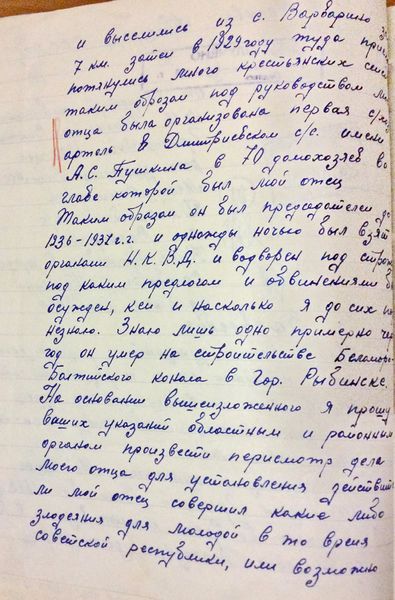 и выселились из с. Варварино за
7 км. затем в 1929 году туда при
потянулись много крестьянских семе
таким образом под руководством мо
отца была организована первая с/хоз
артель в Дмитриевском с/с. имени
А.С. Пушкина в 70 домохозяев во
главе которой был мой отец
Таким образом он был председателем до
1936-1937 г.г. и однажды ночью был взят
органами Н.К.В.Д. и водворен под
под каким предлогом и обвинениями
осужден, кем и насколько я до сих по
незнаю. Знаю лишь одно примерно че
год он умер на строительстве Беламорс
Балтийского конала в Гор. Рыбинске.
На основании вышеизложенного я прошу
ваших указаний областным и районным
органом произвести пересмотр дела
моего отца для установления действите
ли мой отец совершил какие либо
злодеяния для молодой в то время
советской республики, или возможно